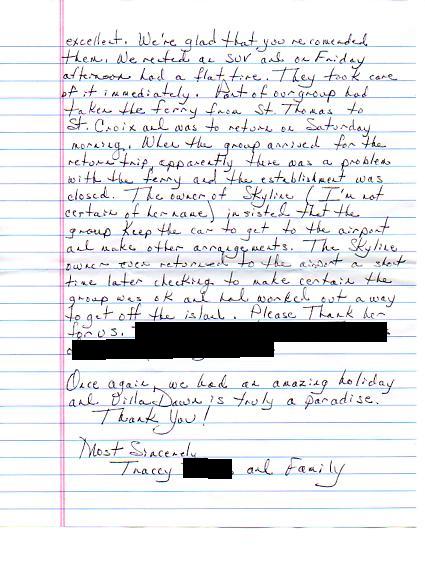 excellent. We're glad that you recomended
them. We rented an SUV and on Friday
afternoon had a flat tire. They took care
of it immediately. Part of our group had
taken the ferry from St. Thomas to
St. Croix and was to return on Saturday
morning. When the group arrived for the
return trip apparently there was a problem
with the ferry and the establishment was
closed. The owner of Skyline (I'm not
certain of her name) insisted that the
group keep the car to get to the airport
and make other arrangements. The Skyline
owner even returned to the airport a short
time later checking to make certain the
group was ok and had worked out a way
to get off the island. Please Thank her
for us.
Once again, we had an amazing holiday
and Villa Dawn is truly a paradise.
Thank You!
Most Sincerely
Tracey and Family